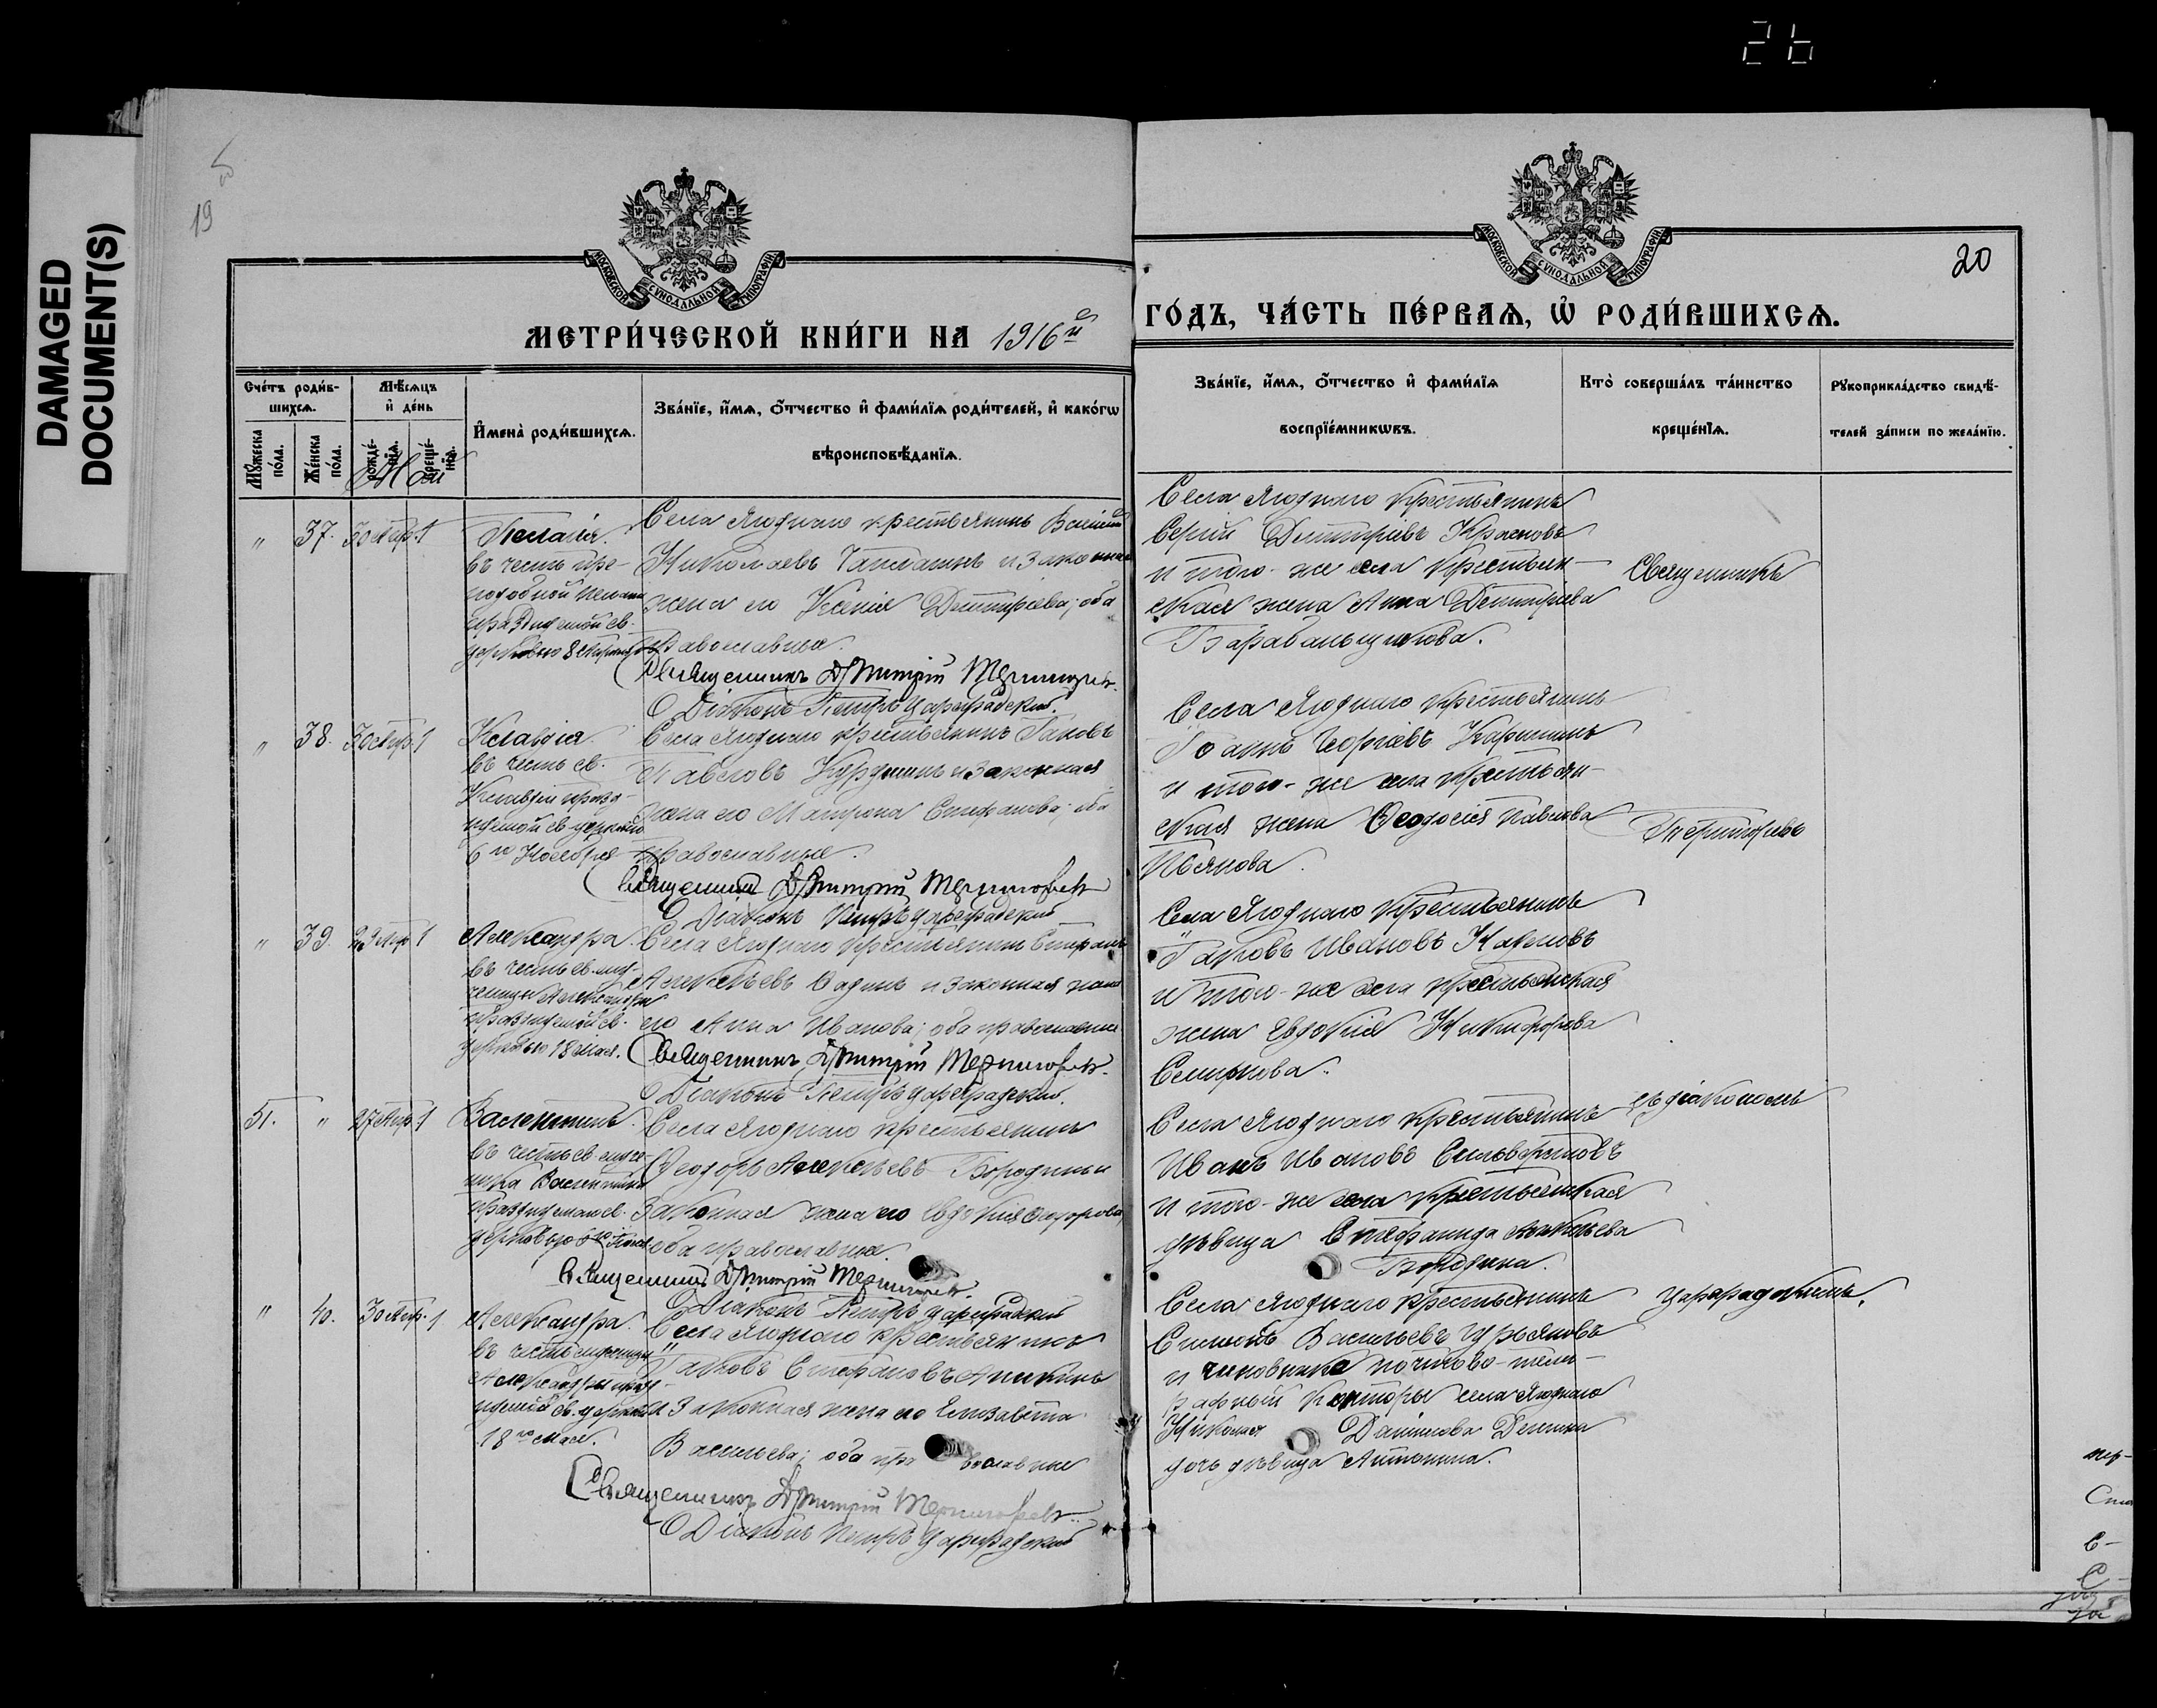 26
DAMAGED
DOCUMENT(S)
19
20
МОСКОВСКОЙ СУНОДАЛЬНОЙ ТИПОГРАФІИ
МОСКОВСКОЙ СУНОДАЛЬНОЙ ТИПОГРАФІИ
МЕТРИ́ЧЕСКОЙ КНИ́ГИ НА 1916й
ГО́ДЪ, ЧА́СТЬ ПЕ́РВАѦ, Ѡ҆ РОДИ́ВШИХСѦ.
Сче́тъ роди́в-
шихсѧ.
Мꙋ́жеска
по́ла.
Же́нска
по́ла.
Мѣ́сѧцъ
и҆ де́нь
рожде́-
нїѧ.
креще́-
нїѧ.
Май
И҆мена̀ роди́вшихсѧ.
Зва́нїе, и҆́мѧ, ѻ҆́тчество и҆ фами́лїѧ роди́телей, и҆ како́гѡ
вѣроисповѣ́данїѧ.
Зва́нїе, и҆́мѧ, ѻ҆́тчество и҆ фами́лїѧ
воспрїе́мникѡвъ.
Кто̀ соверша́лъ та́инство
креще́нїѧ.
Рꙋкоприкла́дство свидѣ́-
телей за́писи по жела́нїю.
" 37. 30 Апр. 1
Пелагія.
въ честь пре-
подобной
празднуемой св.
церковью 8
Села Ягоднаго крестьянинъ Василій
Николаевъ и законная
жена его Ксенія Димитріева; оба
православные.
Священникъ Димитрій
Діаконъ Петръ Цареградскій.
Села Ягоднаго крестьянинъ
Сергій Димитріевъ Красновъ
и того-же села крестьян-
ская жена Анна Димитріева
Барабанщикова.
Священникъ
" 38. 30 Апр. 1
Клавдія
въ честь св.
Клавдіи празд-
нуемой св. церковью
6го Ноября
Села Ягоднаго крестьянинъ Іаковъ
Павловъ и законная
жена его Матрона Стефанова; оба
православные.
Священникъ Димитрій
Діаконъ Петръ Цареградскій
Села Ягоднаго крестьянинъ
Іоаннъ Георгіевъ
и того-же села крестьян-
ская жена Ѳеодосія Павлова
" 39. 23 Апр 1
Александра.
въ честь св. му-
ченицы Александры
празднуемой св.
церковью 18 Мая.
Села Ягоднаго крестьянинъ Стефанъ
Алексѣевъ и законная жена
его Анна Иванова; оба православные
Священникъ Димитрій
Діаконъ Петръ Цареградскій.
Села Ягоднаго крестьянинъ
Іаковъ Ивановъ
и того-же села крестьянская
жена Евдокія Никифорова
Смирнова.
51. " 27 Апр. 1
Валентинъ.
въ честь св. муче-
ника Валентина
празднуемаго св.
церковью
Села Ягоднаго крестьянинъ
Ѳеодоръ Алексѣевъ Бородинъ и
законная жена его Евдокія
оба православные.
Священникъ Димитрій
Діаконъ Петръ Цареградскій
Села Ягоднаго крестьянинъ
Иванъ Ивановъ Сильверстовъ
и того-же села крестьянская
дѣвица Стефанида Алексѣева
Бородина.
съ діакономъ
Цареградскимъ.
" 40. 30 Апр. 1
Александра.
въ честь мученицы
Александры празд-
нуемой св. церковью
18го Мая.
Села Ягоднаго крестьянинъ
Іаковъ Стефановъ Аникинъ
и законная жена его Елизавета
Васильева; оба православные
Священникъ Димитрій
Діаконъ Петръ Цареградскій
Села Ягоднаго крестьянинъ
Симеонъ Васильевъ
и чиновника почтово-теле-
графный конторы села Ягоднаго
Николая Данилова
дочь дѣвица Антонина.